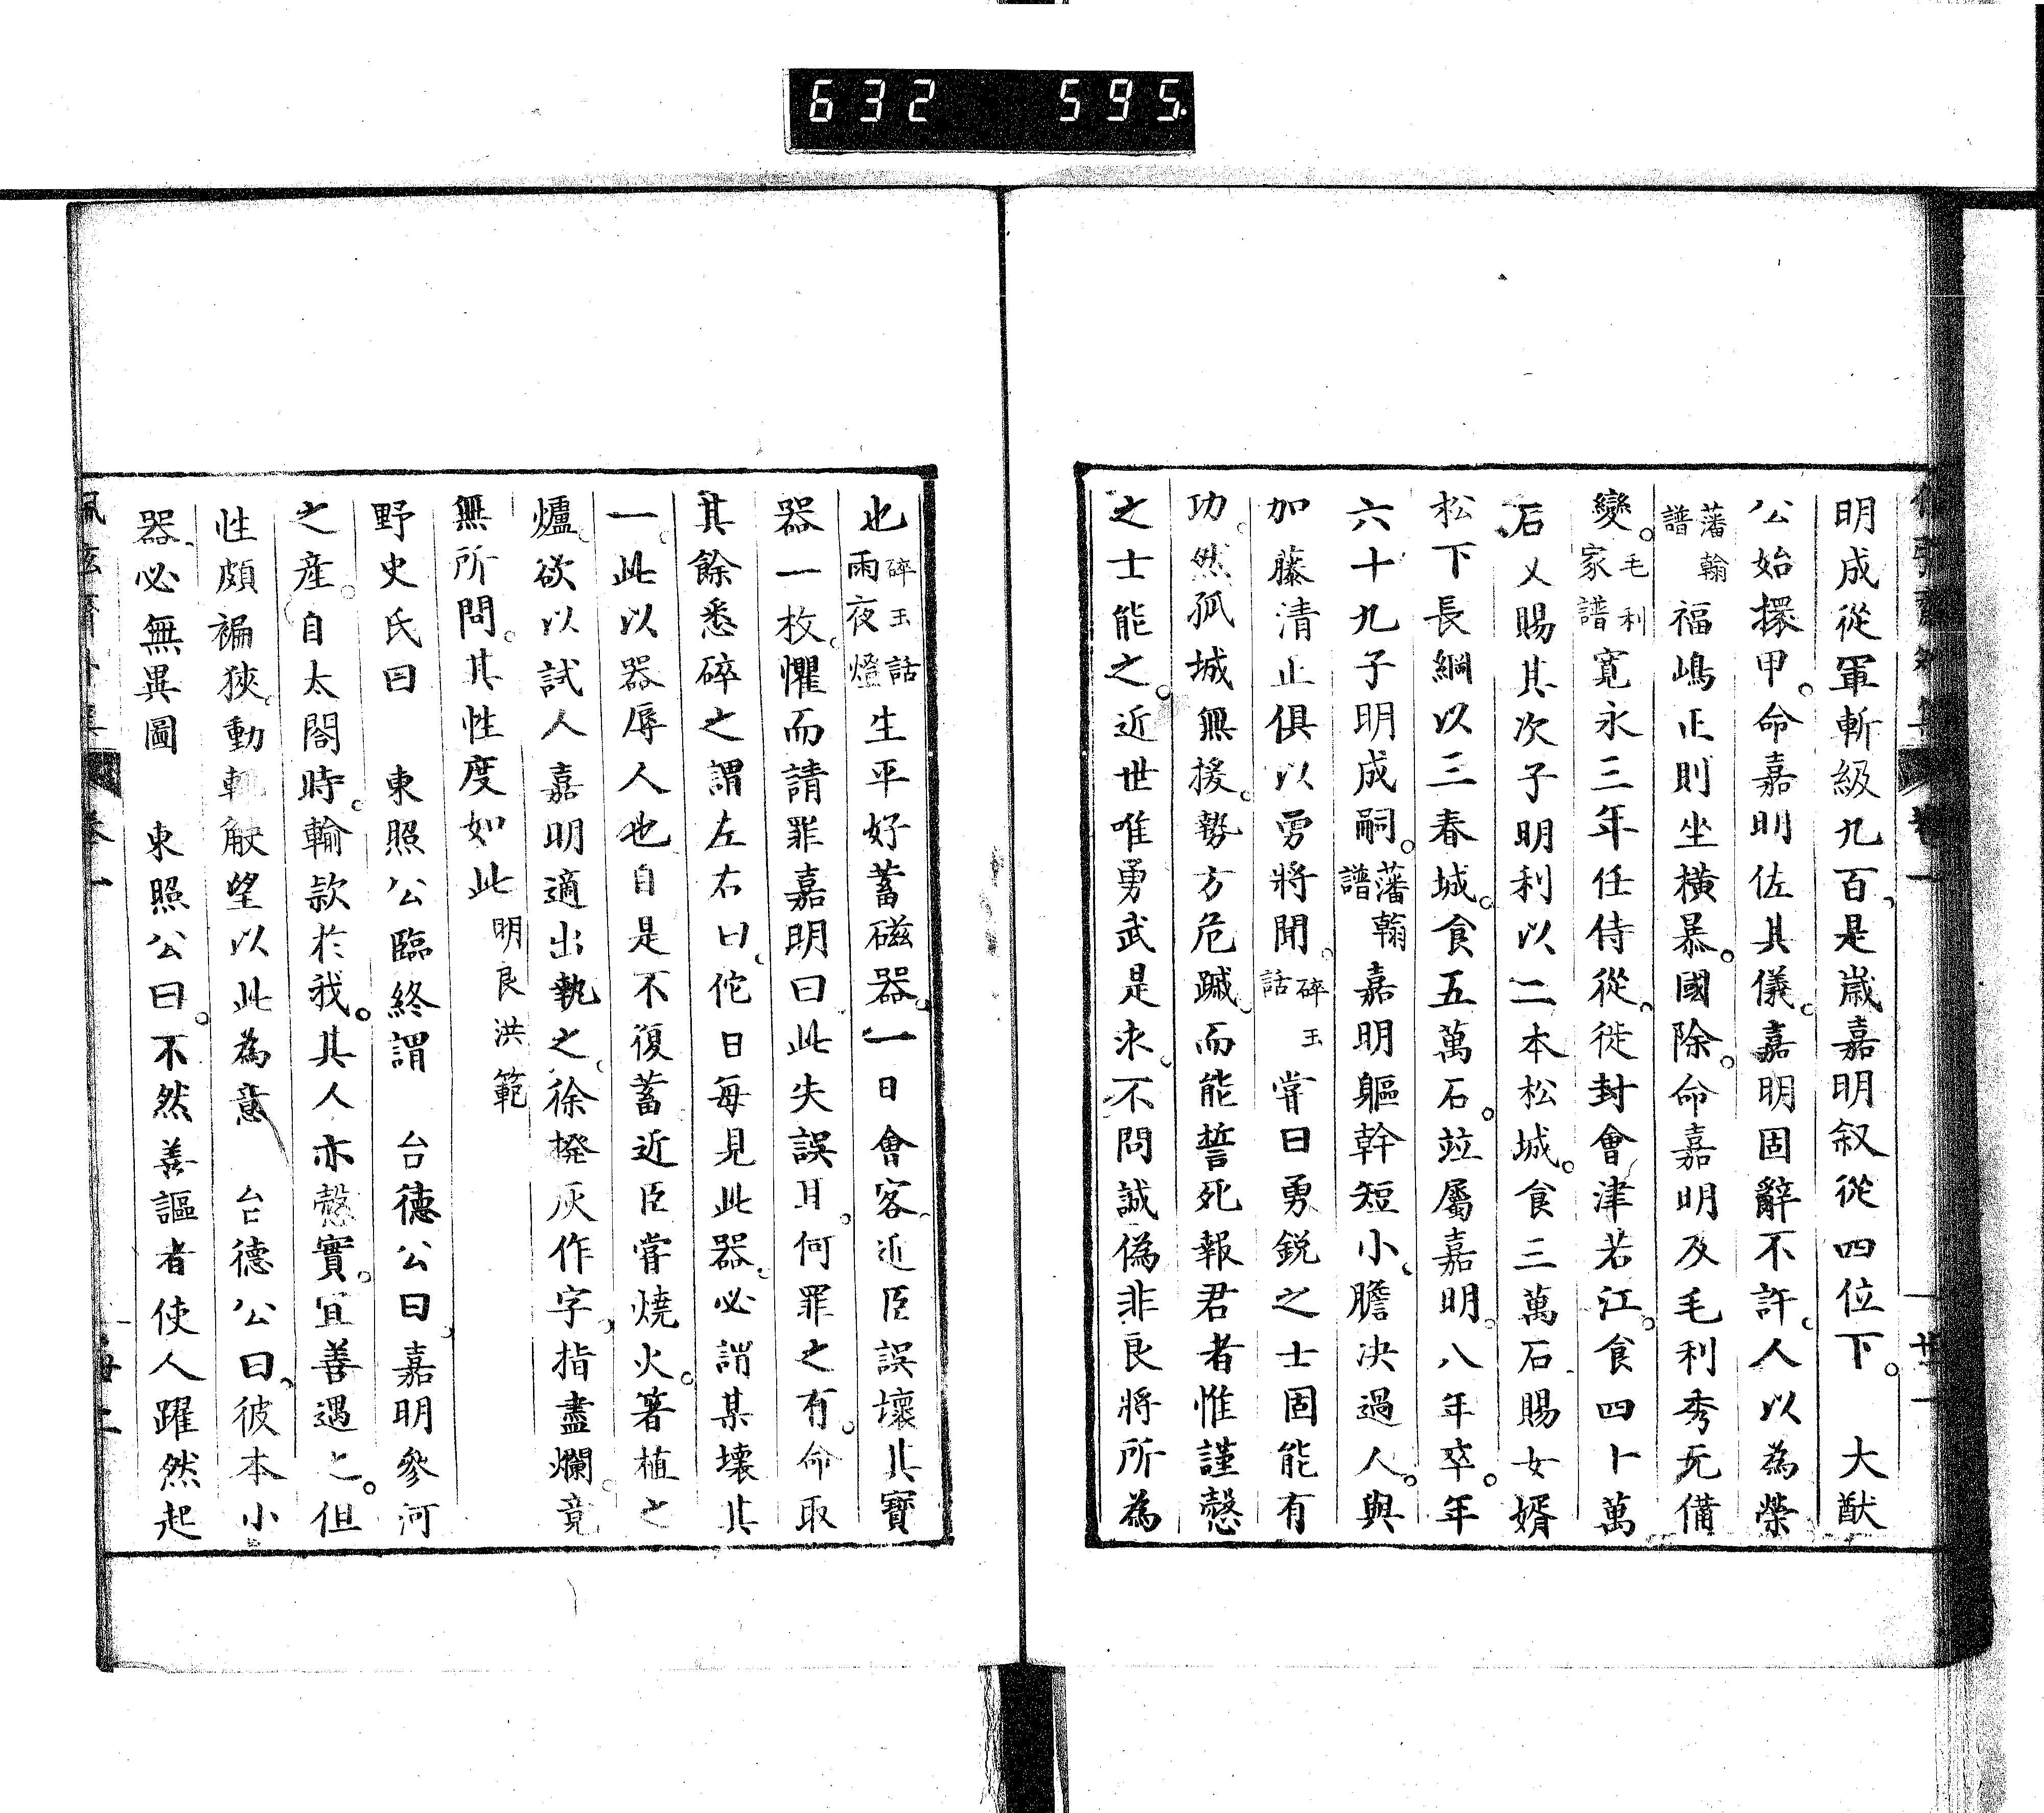 632 595.
明成從軍斬級九百是歲嘉明叙從四位下。 大猷
公始擐甲。命嘉明佐其儀。嘉明固辭不許人以為榮
藩翰譜福嶋正則坐橫暴。國除。命嘉明及毛利秀元備
變。毛利家譜寛永三年任侍從徙封會津若江。食四十萬
石又賜其次子明利以二本松城。食三萬石賜女婿
松下長綱以三春城。食五萬石。竝屬嘉明。八年卒。年
六十九子明成嗣。藩翰譜嘉明軀幹短小膽决過人。與
加藤清正俱以勇將聞。碎玉話嘗曰勇銳之士固能有
功。然孤城無援。勢方危蹙而能誓死報君者惟謹愨
之士能之。近世唯勇武是求。不問誠偽非良將所為
也碎玉話雨夜燈生平好蓄磁器。一日會客近臣誤壞其寶
器一枚。懼而請罪嘉明曰此失誤耳。何罪之有。命取
其餘悉碎之謂左右曰佗日每見此器必謂某壞其
一。此以器辱人也自是不復蓄近臣嘗燒火。箸植之
爐。欲以試人嘉明適出執之徐撥灰作字指盡爛。竟
無所問。其性度如此明良洪範
野史氏曰 東照公臨終謂 台德公曰嘉明參河
之產。自太閤時。輸款於我。其人亦愨實。宜善遇之。但
性頗褊狹動輒觖望以此為意 台德公曰彼本小
器必無異圖 東照公曰。不然善謳者使人躍然起